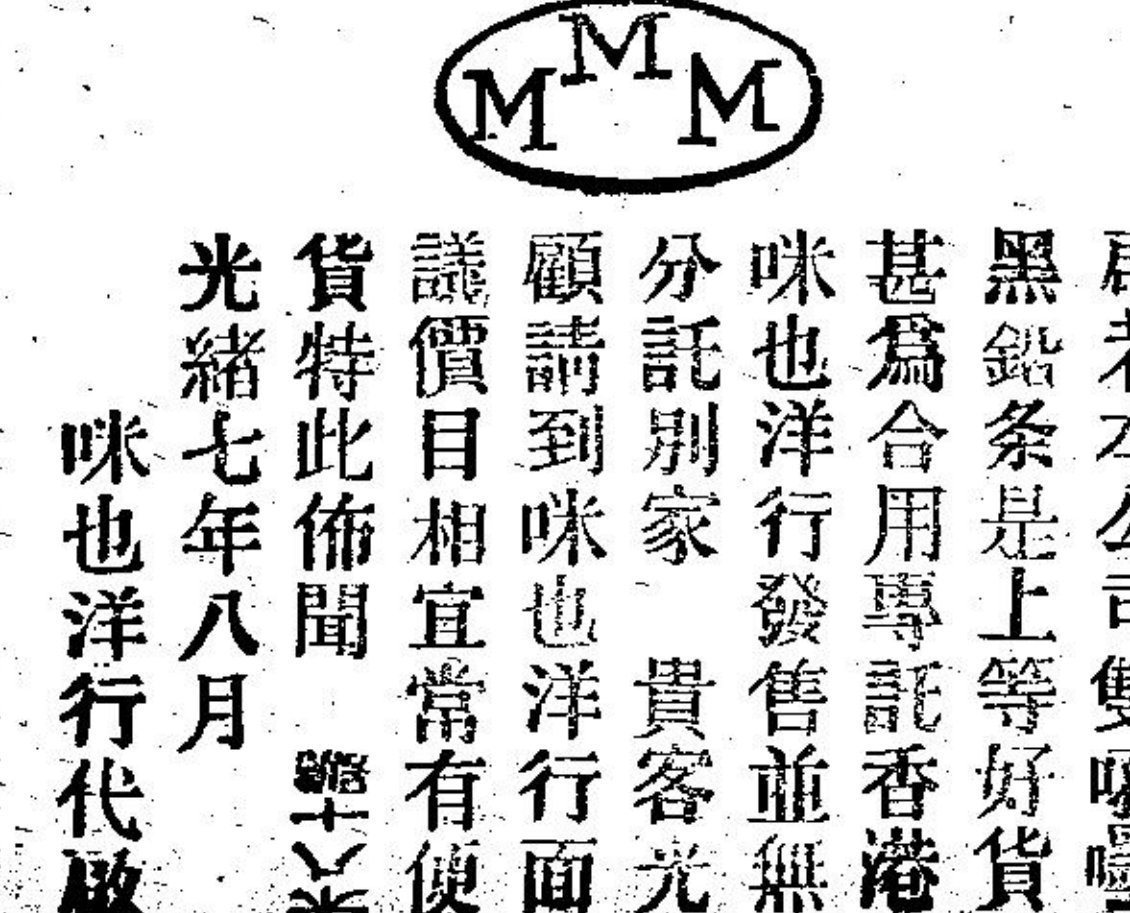 M M M
者本公司雙
黑鉛条是上等好貨
甚爲合用專託香港
咪也洋行發售並無
分託別家 貴客光
顧請到咪也洋行面
議價目相宜常有便
貨特此佈聞
光緒七年八月
咪也洋行代啟